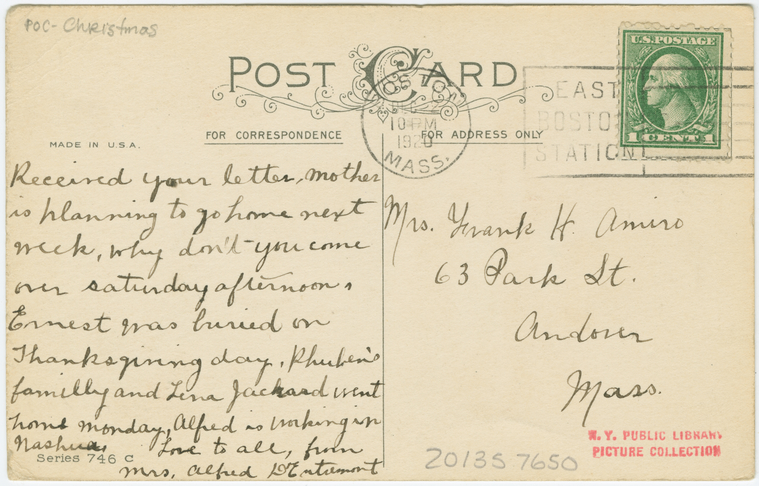 POC - Christmas
POST CARD
U.S. POSTAGE
1 CENT 1
BOSTON
DEC 2
10 PM
1920
MASS.
EAST
BOSTON
STATION
MADE IN U.S.A.
FOR CORRESPONDENCE
FOR ADDRESS ONLY
Received your letter, mother
is planning to go home next
week, why don't you come
over saturday afternoon,
Ernest was buried on
Thanksgiving day, Rhuben's
familly and Lena Jackard went
home monday, Alfred is working in
Nashua, Love to all, from
Mrs, Alfred D'Entremont
Series 746 C
Mrs. Frank H. Amiro
63 Park St.
Andover
Mass.
N.Y. PUBLIC LIBRARY
PICTURE COLLECTION
2013S 7650